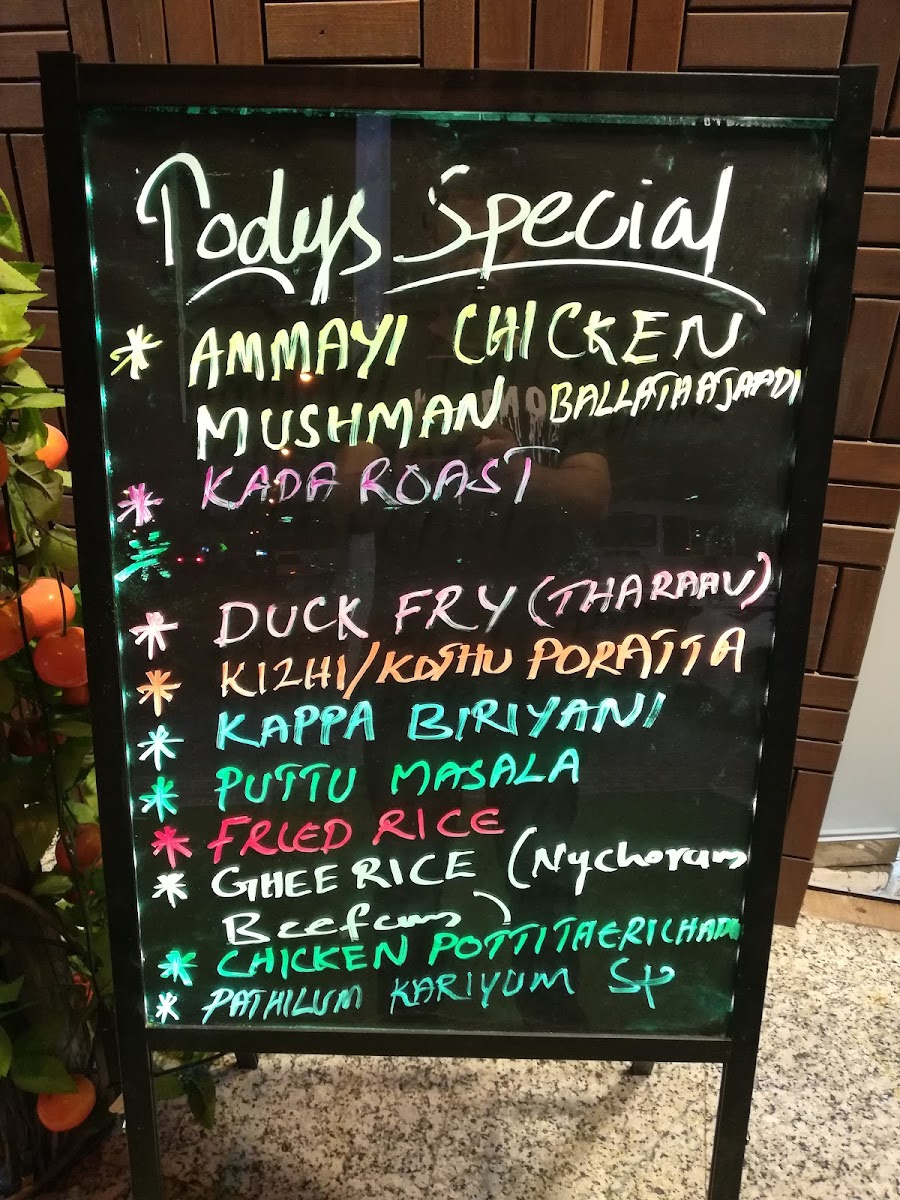 Todys Special
* AMMAYI CHICKEN
MUSHMAN BALLATHATJAADI
* KADA ROAST
*
* DUCK FRY (THARAAV)
* KIZHI/KOTHU PORATTA
* KAPPA BIRIYANI
* PUTTU MASALA
* FRIED RICE
* GHEE RICE (Nychorum
Beefum)
* CHICKEN POTTITHERICHADU
* PATHILUM KARIYUM SP